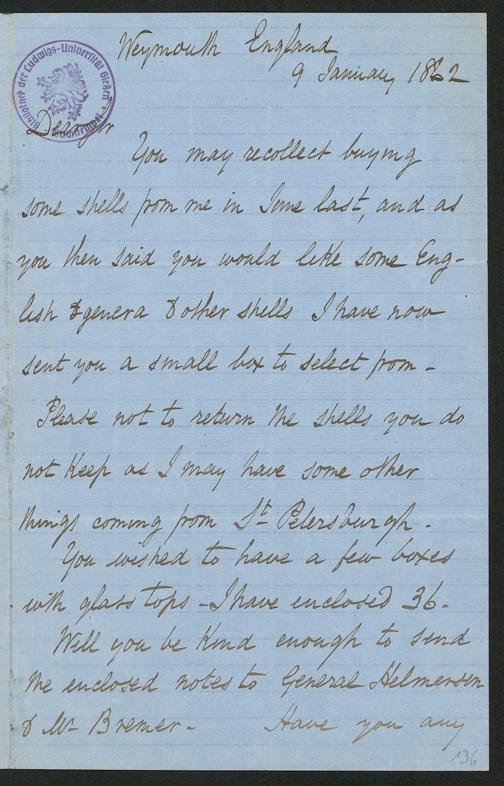 Weymouth England
9 January 1862
Bibliothek der Ludwigs-Universität Gießen
Dear Sir
You may recollect buying
some shells from me in June last, and as
you then said you would like some Eng-
lish & genera & other shells I have now
sent you a small box to select from -
Please not to return the shells you do
not keep as I may have some other
things coming from St. Petersburgh.
You wished to have a few boxes
with glass tops - I have enclosed 36.
Will you be kind enough to send
the enclosed notes to General Helmersen
& Mr Bremer. Have you any
136